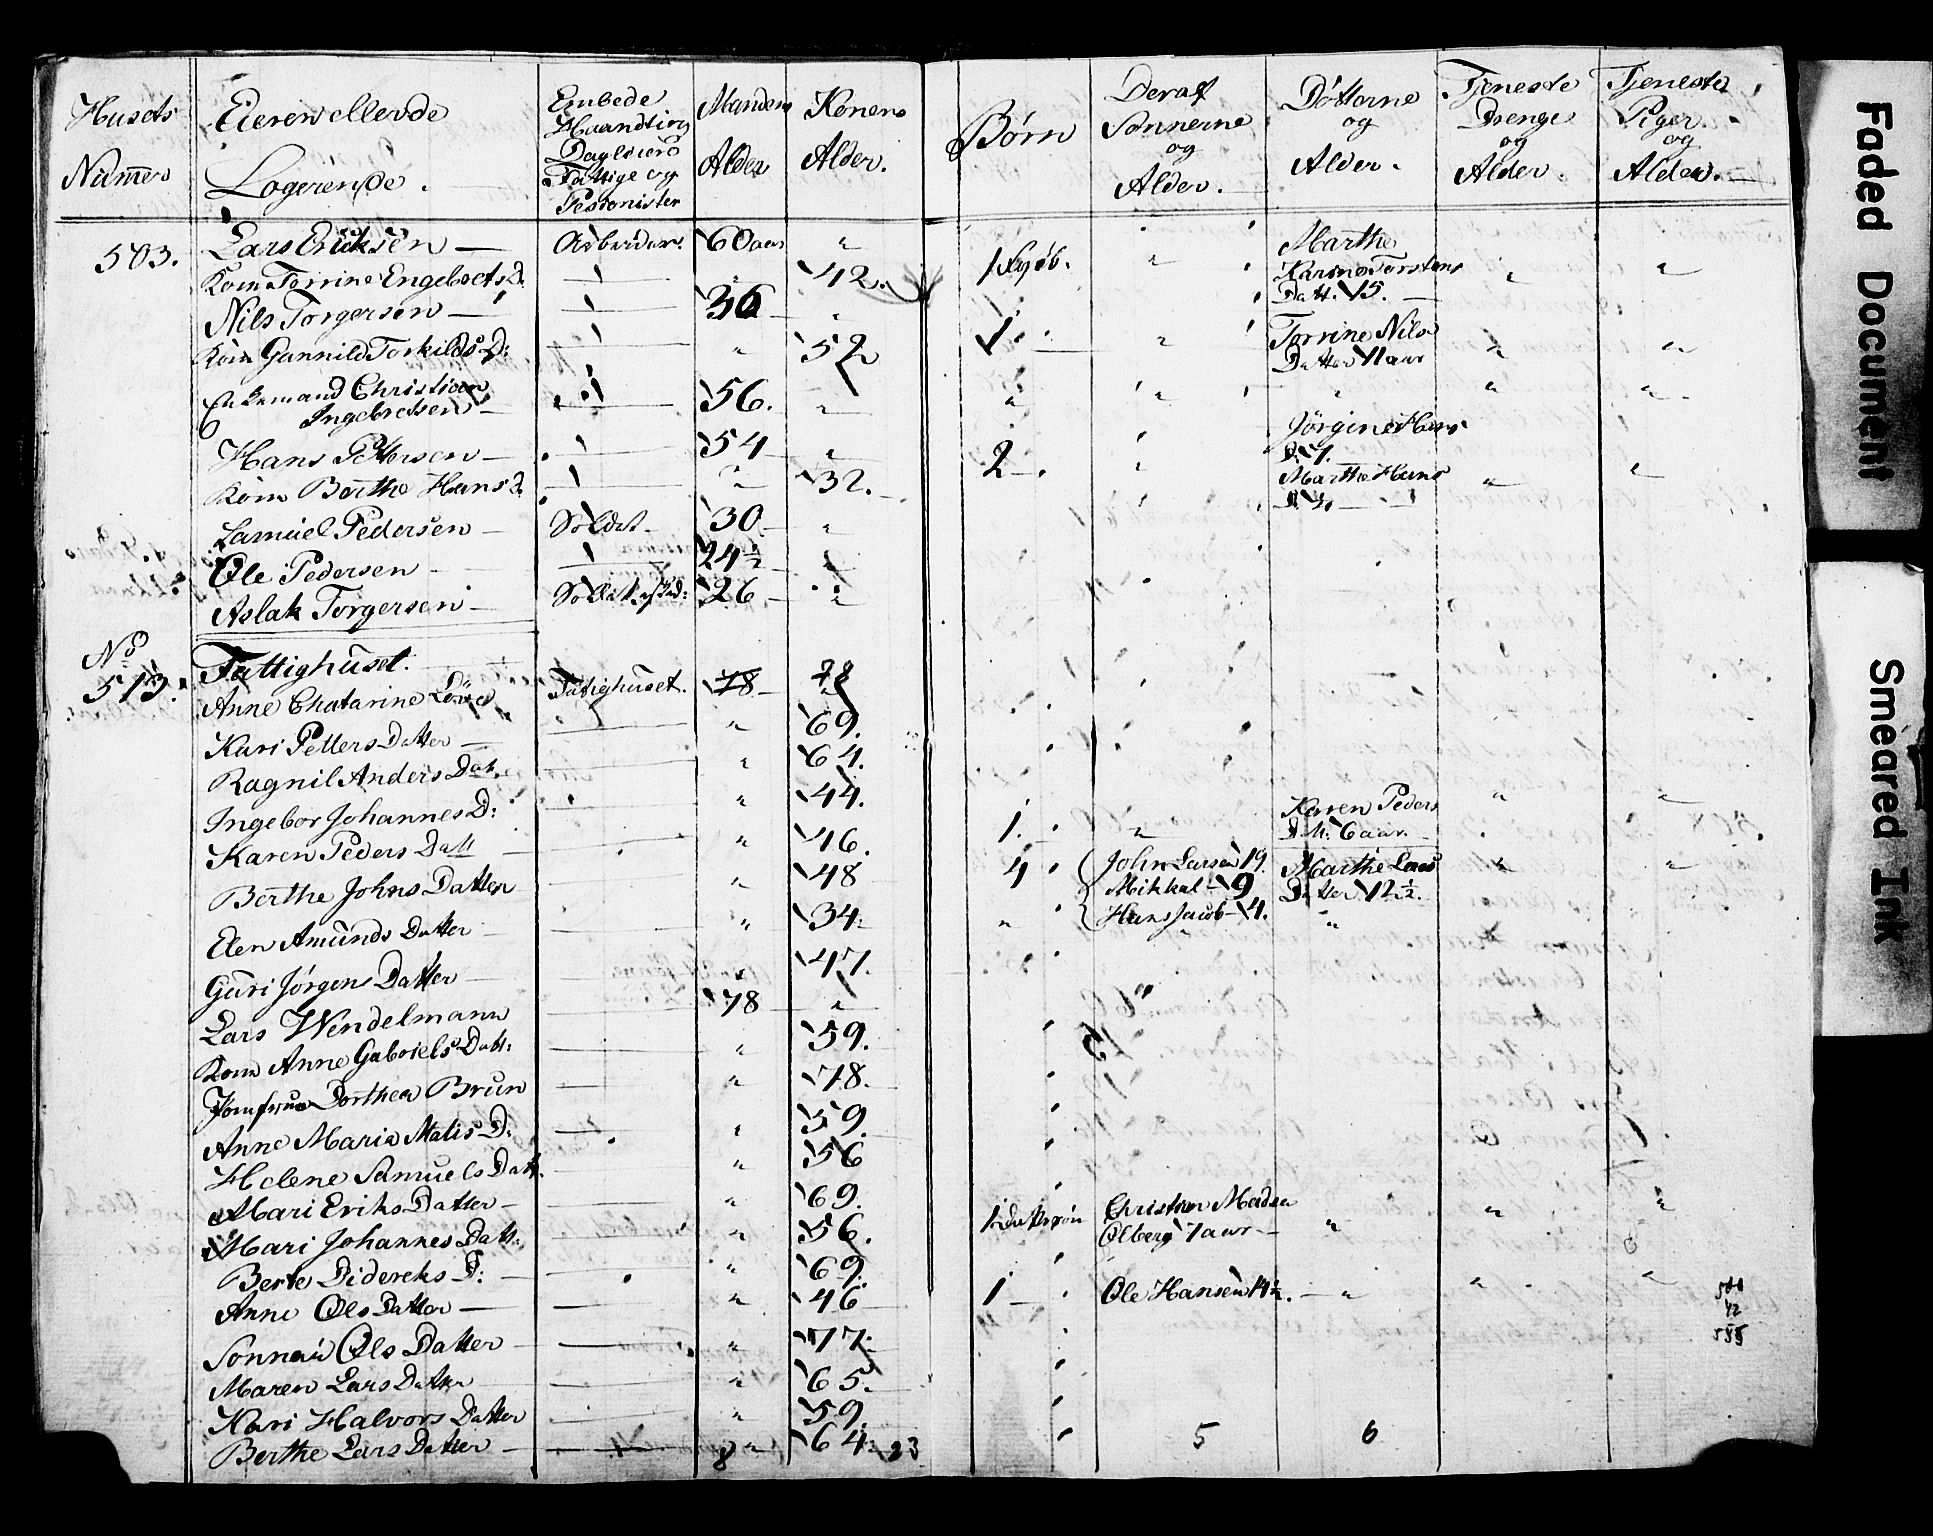 Husets Numer
Eieren ellerde Logerende.
Embede Haandtiering Dagleiere Fattige og Pesionister
Mandens Alder
Konens Alder.
Børn
Deraf Sønnerne og Alder.
Døttørne og Alder.
Tjeneste Drenge og Alder.
Tjeneste Piger og Alder.
503. Lars Ericksen — Arbeider. 60 aar "
Kone Torrine Engebrets D. — " 42. 1 " Marthe Karine Torstens Datt. 15. " "
Nils Torgersen — 36 "
Kone Gunnild Torkilds D: — " 52 1 " Torrine Nils Datter 11 aar " "
Enkemand Christian Ingebretsen — 56. " " " " " "
Hans Pettersen — 54 " Jørgine Hans D. 7.
Kone Berthe Hans D. — " 32. 2 — " Marthe Hans " "
Samuel Pedersen — Soldat — 30 "
Ole Pedersen — 24½ "
Aslak Torgersen — 26 — "
No 513. Fattighuset.
Anne Chatarine Fatighuset. 78 78
Kari Petters Datter — " 69.
Ragnil Anders Dat. " 64.
Ingebor Johannes D: " 44.
Karen Peders Datt — " 46. 1. " Karen Peders Dt. 6 aar. " "
Berthe Johns Datter " 48 4 John Larsen 19. Marthe Lars Datter 12½. " "
Mikkal — 9
Hans Jacob — 4. "
Elen Amunds Datter " 34. "
Guri Jørgens Datter — " 47.
Lars Wendelmann 78 "
Kone Anne Gabriels Datt. " 59.
Jomfrue Dorthea Brun " 78.
Anne Maria Matis D. " 59.
Helene Samuels Datt. " 56
Mari Eriks Datter — " 69.
Mari Johannes Datt. " 56. 1 Christian Madsen Olberg 7 aar — " " "
Berte Didereks D: — " 69.
Anne Ols Datter — " 46 1 — Ole Hansen 14½. — " " "
Ols Datter " 77.
Maren Lars Datter " 65.
Kari Halvors Datter " 59.
Berthe Lars Datter — 8 " 64. 23 5 6
Faded Document
Smeared Ink